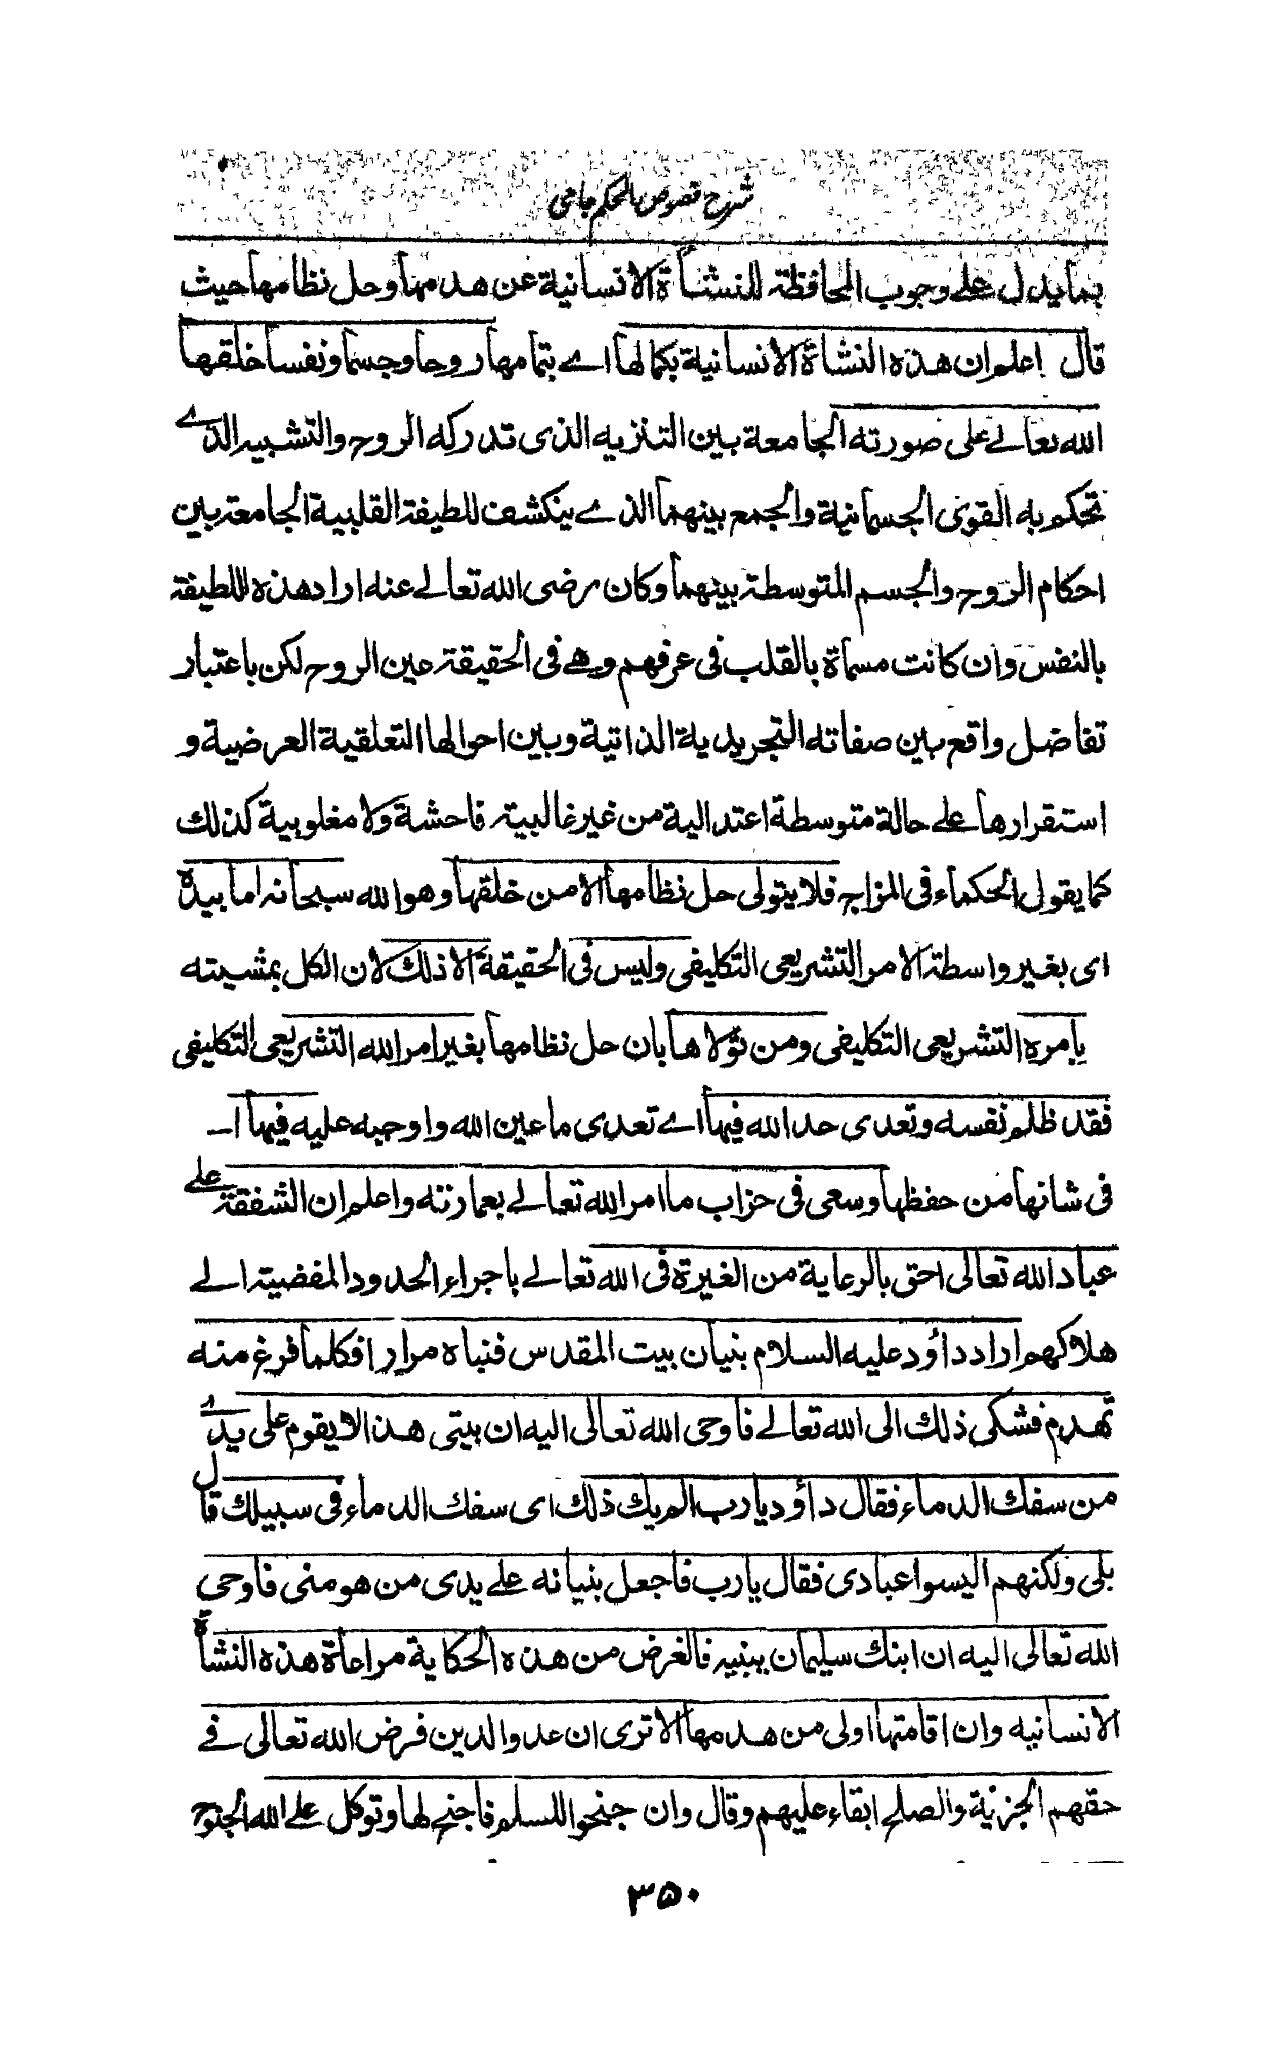 شرح فصوص الحكم جامى
بما يدل على وجوب المحافظة للنشأة الانسانية عن هدمها وحل نظامها حيث
قال اعلم ان هذه النشاة الانسانية بكمالها اے بتمامها روحا وجسما ونفسا خلقها
الله تعالے على صورته الجامعة بين التنزيه الذى تدركه الروح والتشبيه الذے
تحكم به القوى الجسمانية والجمع بينهما الذے ينكشف للطيفة القلبية الجامعة بين
احكام الروح والجسم المتوسطة بينهما وكان رضى الله تعالے عنه اراد هذه اللطيفة
بالنفس وان كانت مسماة بالقلب فى عرفهم وهے فى الحقيقة عين الروح لكن باعتبار
تفاضل واقع بين صفاته التجريدية الذاتية وبين احوالها التعلقية العرضية و
استقرارها علے حالة متوسطة اعتدالية من غير غالبية فاحشة ولا مغلوبية كذلك
كما يقول الحكماء فى المزاج فلا يتولى حل نظامها الا من خلقها وهو الله سبحانه اما بيده
اى بغير واسطة الامر التشريعى التكليفى وليس فى الحقيقة الا ذلك لان الكل بمشيته
يامره التشريعى التكليفى ومن تولاها بان حل نظامها بغير امر الله التشريعى التكليفى
فقد ظلم نفسه وتعدى حد الله فيها اے تعدى ما عين الله واوجبه عليه فيها ا۔
فى شانها من حفظها وسعى فى خراب ما امر الله تعالے بعمارته واعلم ان الشفقة علے
عباد الله تعالى احق بالرعاية من الغيرة فى الله تعالے باجراء الحدود المفضية الے
هلاكهم اراد داؤد عليه السلام بنيان بيت المقدس فبناه مرارا فكلما فرغ منه
تهدم فشكى ذلك الى الله تعالے فاوحى الله تعالى اليه ان بيتى هذا لا يقوم على يدے
من سفك الدماء فقال داؤد يارب الم يك ذلك اى سفك الدماء فى سبيلك قال
بلى ولكنهم اليسوا عبادى فقال يارب فاجعل بنيانه علے يدى من هو منى فاوحى
الله تعالى اليه ان ابنك سليمان يبنيه فالغرض من هذه الحكاية مراعاة هذه النشأة
الانسانيه وان اقامتها اولى من هدمها الا ترى ان عدو الدين فرض الله تعالى فے
حقهم الجزية والصلح ابقاء عليهم وقال وان جنحوا للسلم فاجنح لها وتوكل علے الله الجنوح
٣٥٠